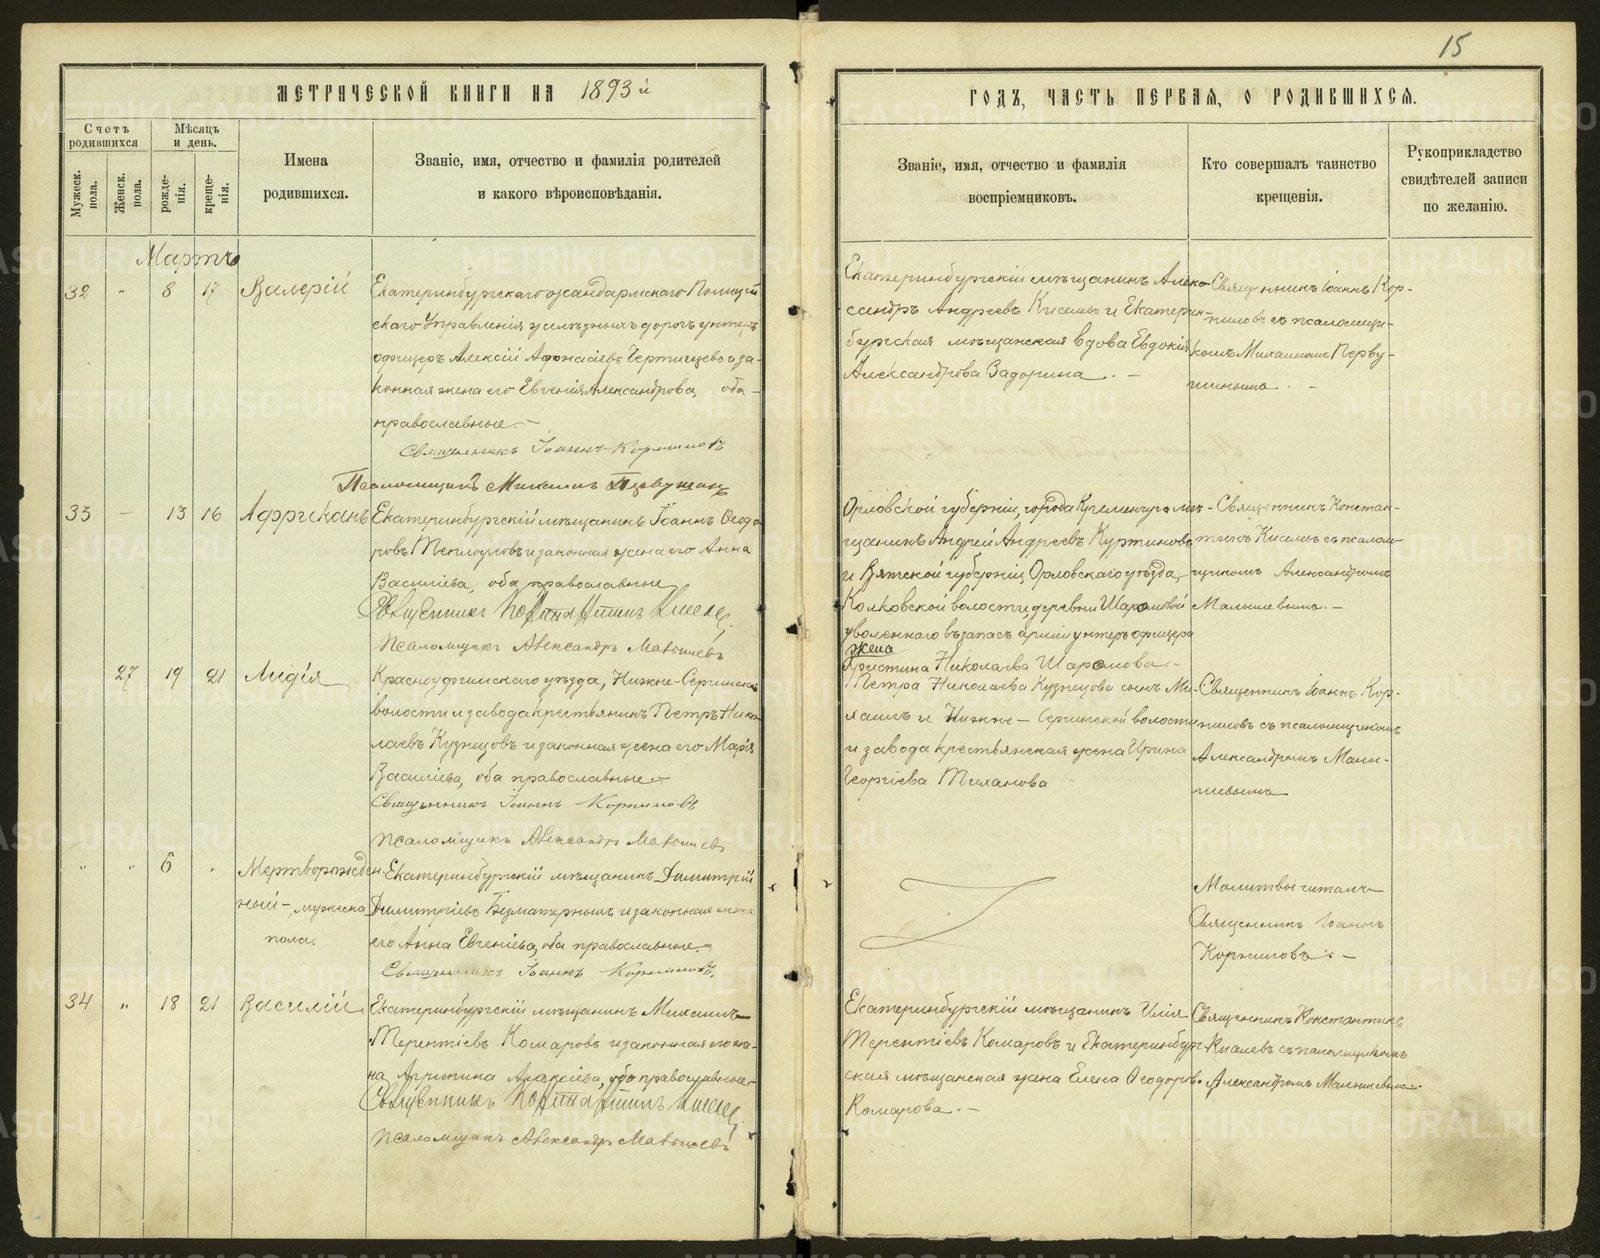 15
МЕТРИЧЕСКОЙ КНИГИ НА 1893й
ГОДЪ, ЧАСТЬ ПЕРВАЯ, О РОДИВШИХСЯ.
Счетъ родившихся
Мѣсяцъ и день.
Мужеск. пола.
Женск. пола.
рожденія.
крещенія.
Имена родившихся.
Званіе, имя, отчество и фамилія родителей
и какого вѣроисповѣданія.
Званіе, имя, отчество и фамилія
воспріемниковъ.
Кто совершалъ таинство
крещенія.
Рукоприкладство
свидѣтелей записи
по желанію.
Мартъ
32 " 8 17 Валерій
Екатеринбургскаго жандармскаго Полицей
скаго Управленія желѣзныхъ дорогъ унтеръ
офицеръ Алексій Афонасіевъ и за-
конная жена его Евгенія Александрова, оба
православные.
Священникъ Іоаннъ Корниловъ
Псаломщикъ Михаилъ Первушинъ
Екатеринбургскій мѣщанинъ Алек-
сандръ Андреевъ Киселевъ и Екатерин-
бургская мѣщанская вдова Евдокія
Александрова Задорина. -
Священникъ Іоаннъ Кор-
ниловъ съ псаломщи-
комъ Михаиломъ Перву-
шинымъ. -
33 - 13 16 Африканъ
Екатеринбургскій мѣщанинъ Іоаннъ Ѳеодо
ровъ Теплоуховъ и законная жена его Анна
Василіева, оба православные
Священникъ Константинъ Киселевъ
Псаломщикъ Александръ Малышевъ
Орловской губерніи, города Кременчуга мѣ-
щанинъ Андрей Андреевъ Куртиновъ
и Вятской губерніи, Орловскаго уѣзда,
волости, деревни
уволеннаго въ запасъ арміи унтеръ офицера
жена
Христина Николаева Шаромова -
Священникъ Констан-
тинъ Киселевъ съ псалом-
щикомъ Александромъ
Малышевымъ. -
27 19 21 Лидія
Красноуфимскаго уѣзда, Нижне-Сергинской
волости и завода крестьянинъ Петръ Нико-
лаевъ Кузнецовъ и законная жена его Марія
Василіева, оба православные -
Священникъ Іоаннъ Корниловъ
Псаломщикъ Александръ Малышевъ
Петра Николаева Кузнецова сынъ Ми-
хаилъ и Нижне-Сергинской волости
и завода крестьянская жена Ирина
Георгіева Тиханова
Священникъ Іоаннъ Кор-
ниловъ съ псаломщикомъ
Александромъ Малы-
шевымъ
" " 6 " Мертворожден-
ный-, мужеска
пола.
Екатеринбургскій мѣщанинъ Димитрій
Димитріевъ и законная жена
его Анна Евгеніева, оба православные. -
Священникъ Іоаннъ Корниловъ.
Молитвы читалъ
Священникъ Іоаннъ
Корниловъ. -
34 " 18 21 Василій
Екатеринбургскій мѣщанинъ Михаилъ
Терентіевъ Комаровъ и законная его же-
на Агрипина Алексіева, оба православные -
Священникъ Константинъ Киселевъ
Псаломщикъ Александръ Малышевъ
Екатеринбургскій мѣщанинъ Илія
Терентіевъ Комаровъ и Екатеринбург-
ская мѣщанская жена Елена Ѳеодоров.
Комарова. -
Священникъ Константинъ
Киселевъ съ псаломщикомъ
Александромъ Малышевымъ. -